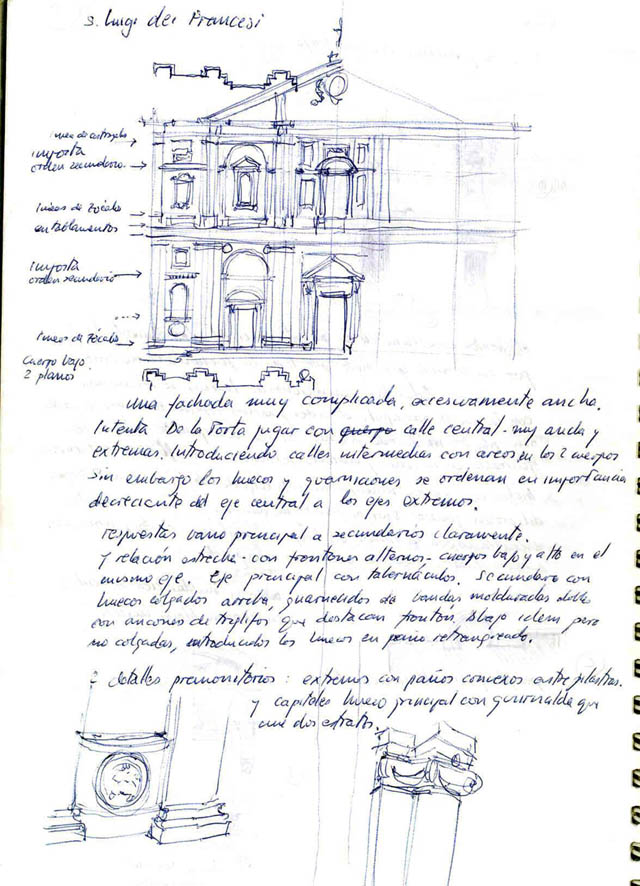 S. Luigi dei Francesi
línea de astrágalo
imposta
orden secundario
líneas de zócalo
entablamentos
imposta
orden secundario
líneas de zócalo
Cuerpo bajo
2 planos
una fachada muy complicada, excesivamente ancha.
Intenta De la Porta jugar con cuerpo calle central - muy ancha y
extremas. Introduciendo calles intermedias con arcos en los 2 cuerpos
Sin embargo los huecos y guarniciones se ordenan en importancia
decreciente del eje central a los ejes extremos.
respuestas vano principal a secundarios claramente.
Y relación estrecha - con frontones alternos - cuerpos bajo y alto en el
mismo eje. Eje principal con tabernáculos. Secundario con
huecos colgados arriba, guarnecidos de bandas molduradas
con ancones de triglifos que destacan frontón. Abajo idem pero
no colgados, introducidos los huecos en paño retranqueado.
2 detalles premonitorios: extremos con paños convexos entre pilastras.
y capiteles hueco principal con guirnalda que
une dos estratos.